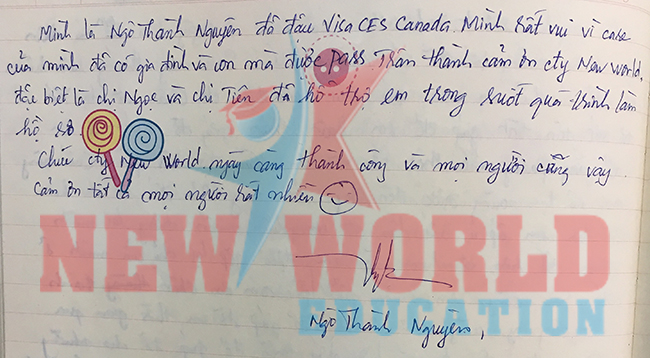 Mình là Ngô Thành Nguyên đã đậu Visa CES Canada. Mình rất vui vì case
của mình đã có gia đình và con mà được pass. Trân thành cảm ơn cty New World,
đặc biệt là chị Ngọc và chị Tiên đã hỗ trợ em trong suốt quá trình làm
hồ sơ
Chúc cty New World ngày càng thành công và mọi người cũng vậy.
Cảm ơn tất cả mọi người rất nhiều
NEW WORLD
EDUCATION
Ngô Thành Nguyên,